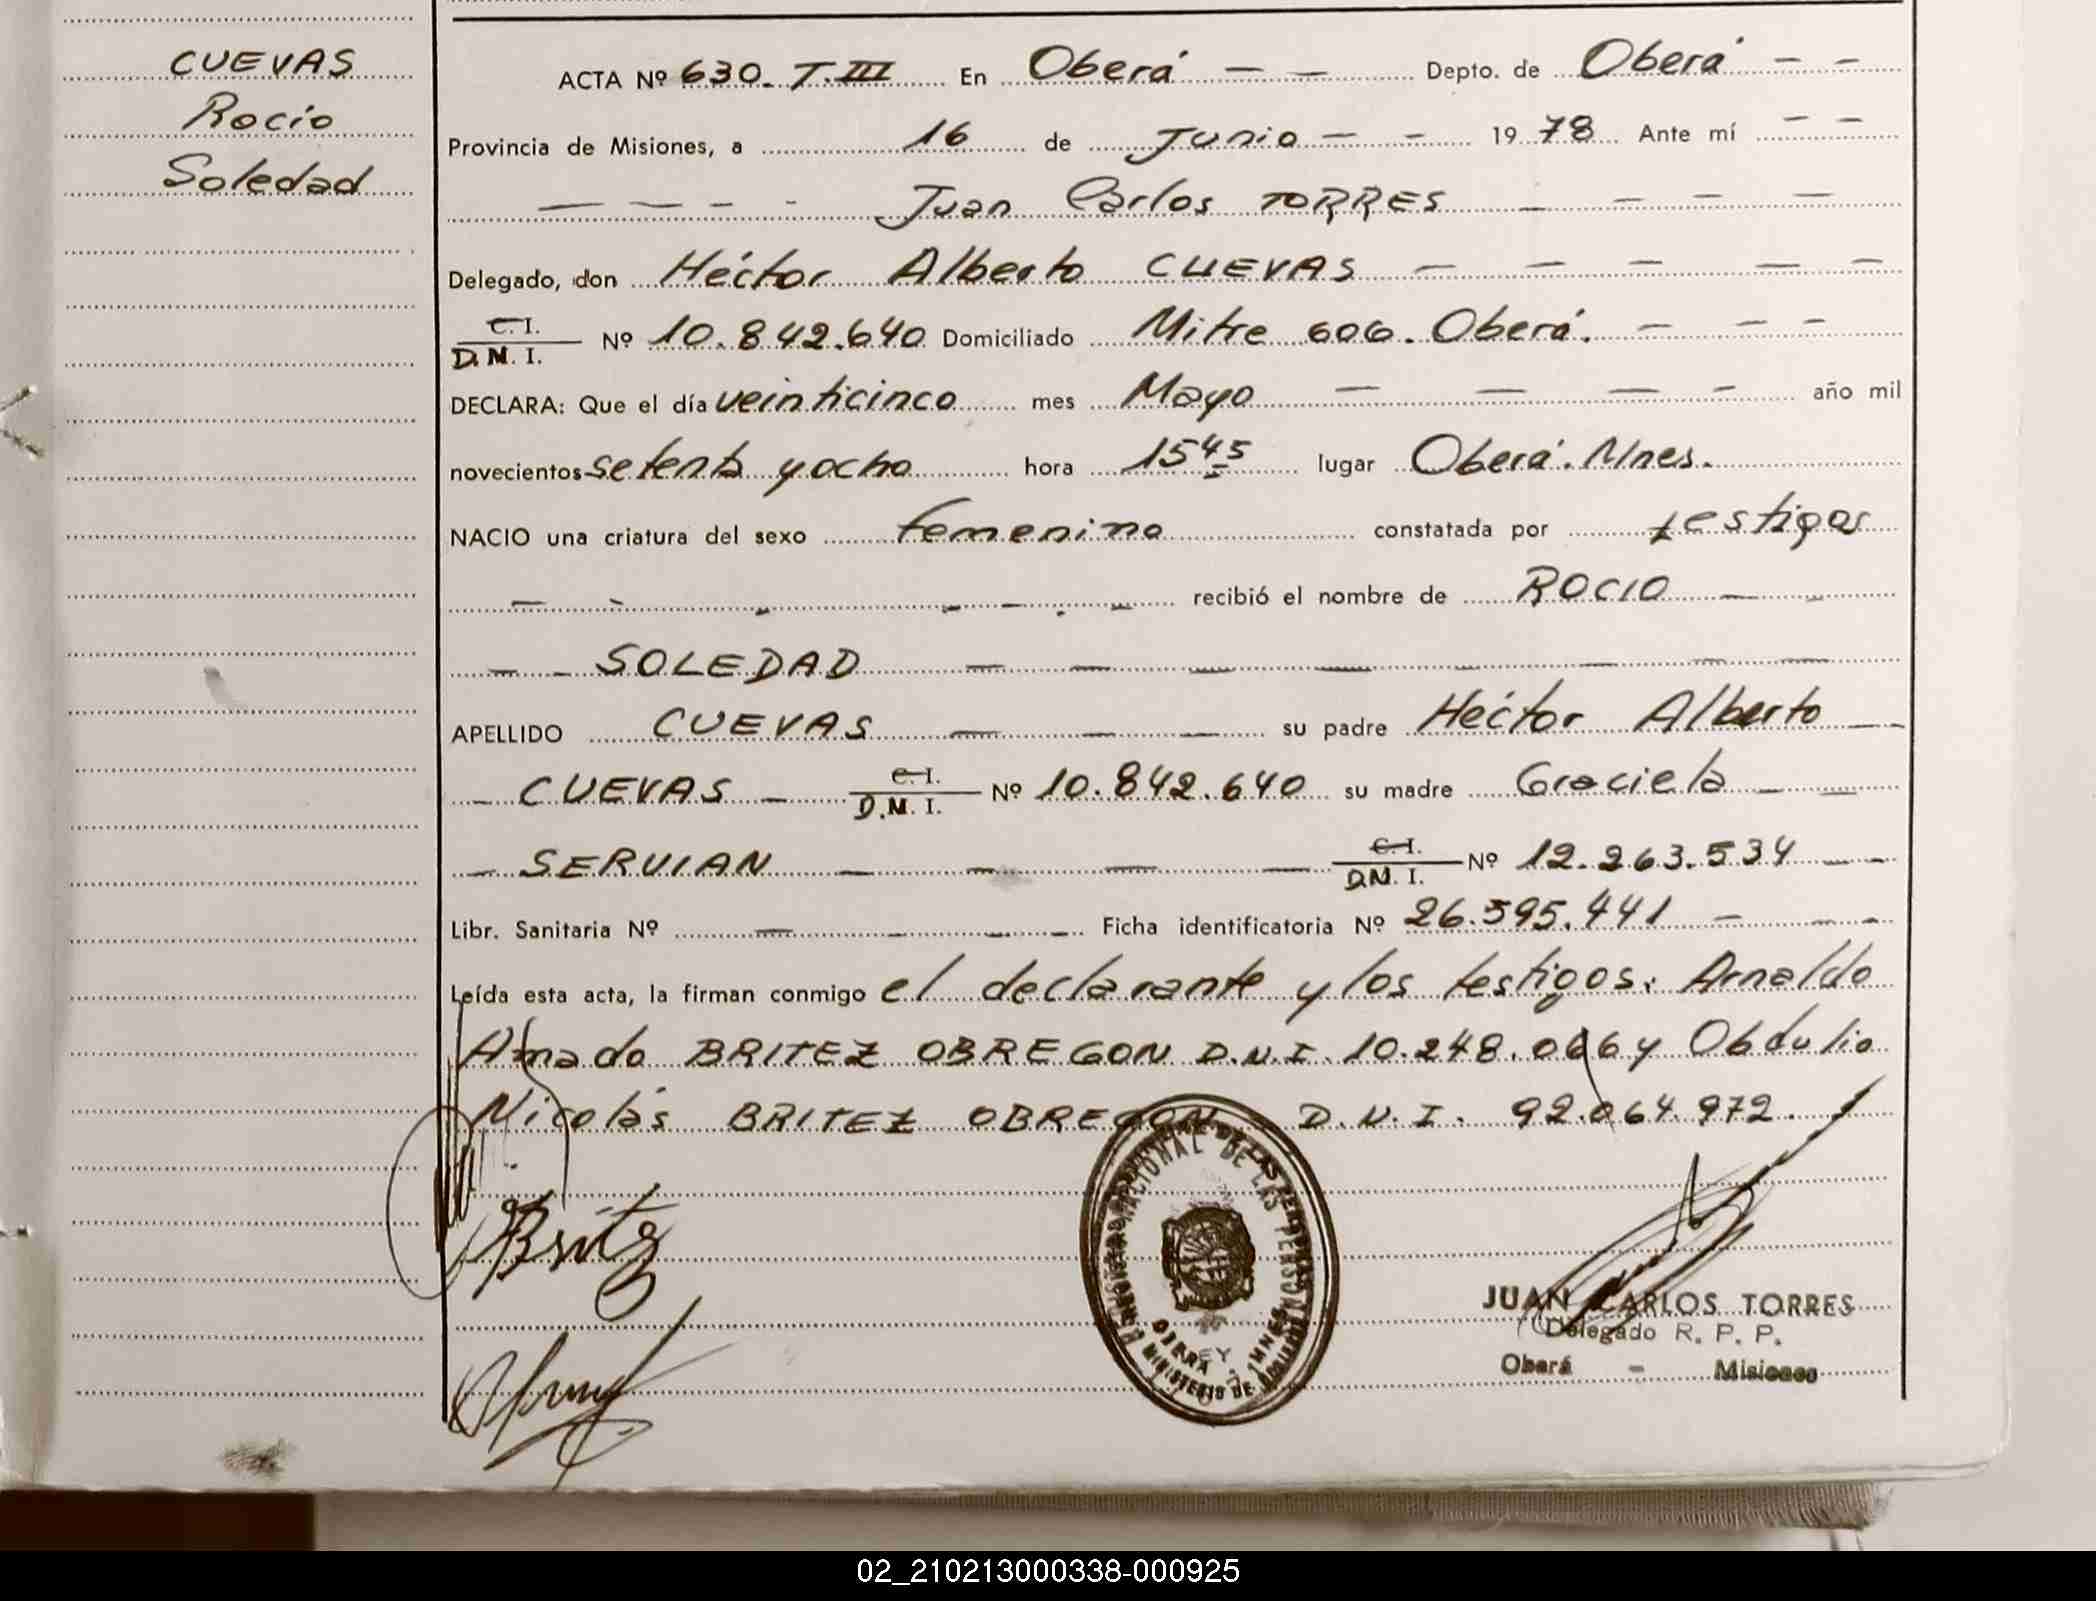 CUEVAS
Rocio
Soledad
ACTA Nº 630. T.III En Oberá - - Depto. de Oberá - -
Provincia de Misiones, a 16 de Junio - - 1978 Ante mí - -
- - - - Juan Carlos TORRES - - - -
Delegado, don Héctor Alberto CUEVAS - - - - -
C.I.
D.N.I. Nº 10.842.640 Domiciliado Mitre 606. Oberá. - - -
DECLARA: Que el día veinticinco mes Mayo - - - - año mil
novecientos setenta y ocho hora 15 45 lugar Oberá. Mnes.
NACIO una criatura del sexo femenino constatada por testigos
- - - - - - recibió el nombre de ROCIO - -
- - SOLEDAD - - - - - - - -
APELLIDO CUEVAS - - - su padre Héctor Alberto -
- CUEVAS - C.I.
D.N.I. Nº 10.842.640 su madre Graciela - -
- SERVIAN - - - - C.I.
D.N.I. Nº 12.263.534 - -
Libr. Sanitaria Nº - - - - Ficha identificatoria Nº 26.595.441 - - -
Leída esta acta, la firman conmigo el declarante y los testigos: Arnaldo
Amado BRITEZ OBREGON D.N.I. 10.248.066 y Obdulio
Nicolás BRITEZ OBREGON D.N.I. 92.064.972.
Britez
NACIONAL DE LAS PERSONAS
OBERA
MNES
MINISTERIO DE
JUAN CARLOS TORRES
Delegado R. P. P.
Oberá - Misiones
02_210213000338-000925